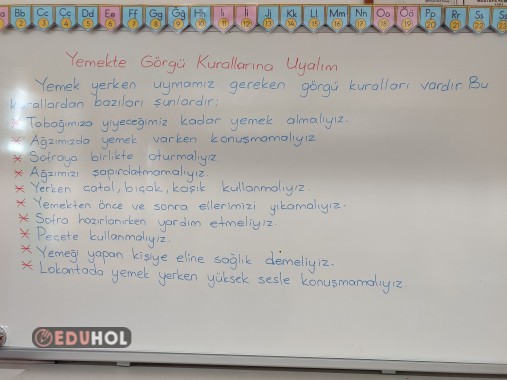 Bb Cc Çç Dd Ee Ff Gg Ğğ Hh Iı İi Jj Kk Ll Mm Nn Oo Öö Pp Rr Ss Şş
Yemekte Görgü Kurallarına Uyalım
Yemek yerken uymamız gereken görgü kuralları vardır. Bu
kurallardan bazıları şunlardır:
* Tabağımıza yiyeceğimiz kadar yemek almalıyız.
* Ağzımızda yemek varken konuşmamalıyız
* Sofraya birlikte oturmalıyız
* Ağzımızı şapırdatmamalıyız.
* Yerken çatal, bıçak, kaşık kullanmalıyız.
* Yemekten önce ve sonra ellerimizi yıkamalıyız.
* Sofra hazırlanırken yardım etmeliyiz.
* Peçete kullanmalıyız.
* Yemeği yapan kişiye eline sağlık demeliyiz.
* Lokantada yemek yerken yüksek sesle konuşmamalıyız.
EDUHOL